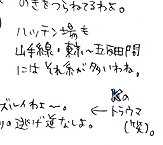 のきをつらねてるわよ。
ハッテン場も
山手線・東京〜五反田間
にはそれ系が多いわね。
ズルイわよ〜。
の逃げ道なしよ。
←の
トラウマ
(笑)。